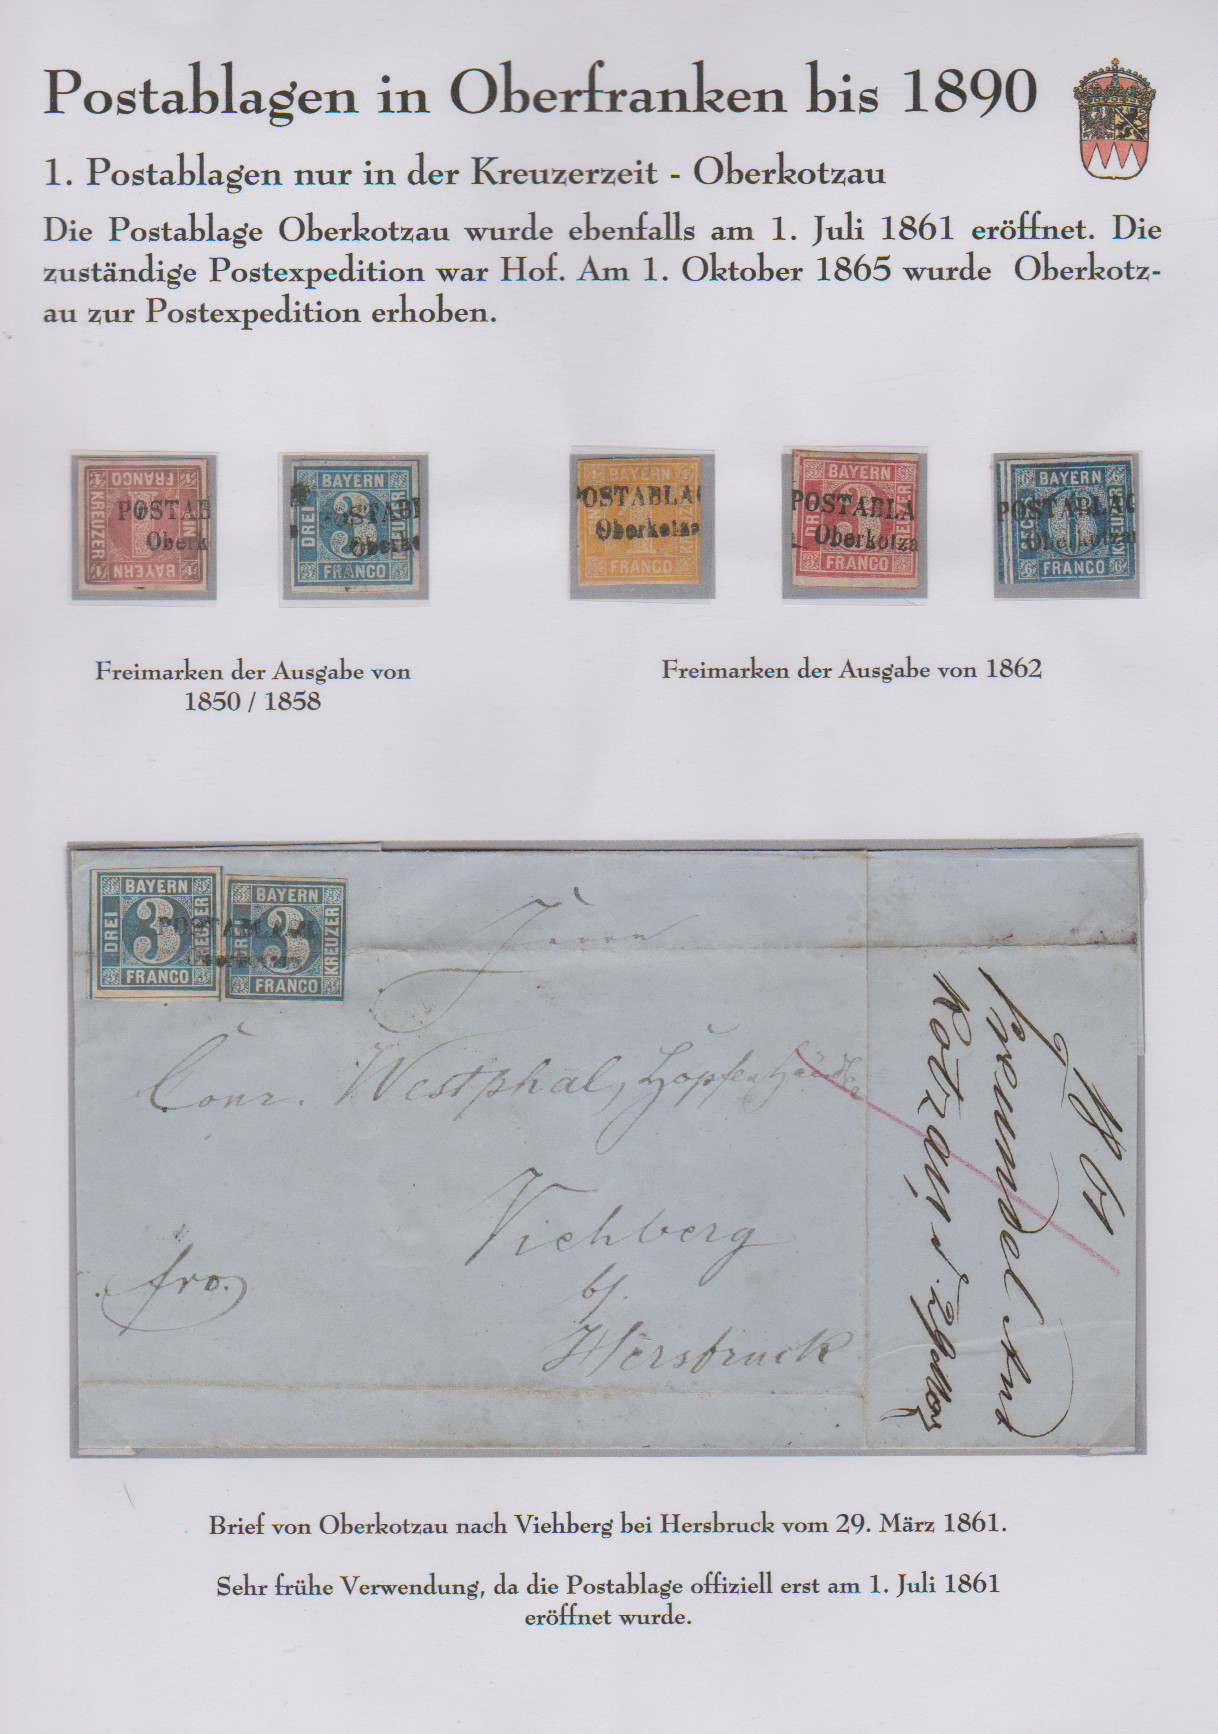 Postablagen in Oberfranken bis 1890
1. Postablagen nur in der Kreuzerzeit - Oberkotzau
Die Postablage Oberkotzau wurde ebenfalls am 1. Juli 1861 eröffnet. Die
zuständige Postexpedition war Hof. Am 1. Oktober 1865 wurde Oberkotz-
au zur Postexpedition erhoben.
FRANCO
KREUZER
BAYERN
POSTAB
Oberk
BAYERN
DREI
3
KREUZER
FRANCO
POSTABL
Oberko
BAYERN
1
KREUZER
FRANCO
POSTABLAG
Oberkotza
BAYERN
3
KREUZER
FRANCO
POSTABLA
Oberkotza
BAYERN
6
KREUZER
FRANCO
POSTABLAG
Oberkotzau
Freimarken der Ausgabe von
1850 / 1858
Freimarken der Ausgabe von 1862
BAYERN
DREI
3
KREUZER
FRANCO
BAYERN
DREI
3
KREUZER
FRANCO
POSTABLAGE
Herrn
Conr. Westphal, Hopfenhändler
Viehberg
b/
Hersbruck
fro.
1861
Kotzau d. 29 März
Brief von Oberkotzau nach Viehberg bei Hersbruck vom 29. März 1861.
Sehr frühe Verwendung, da die Postablage offiziell erst am 1. Juli 1861
eröffnet wurde.